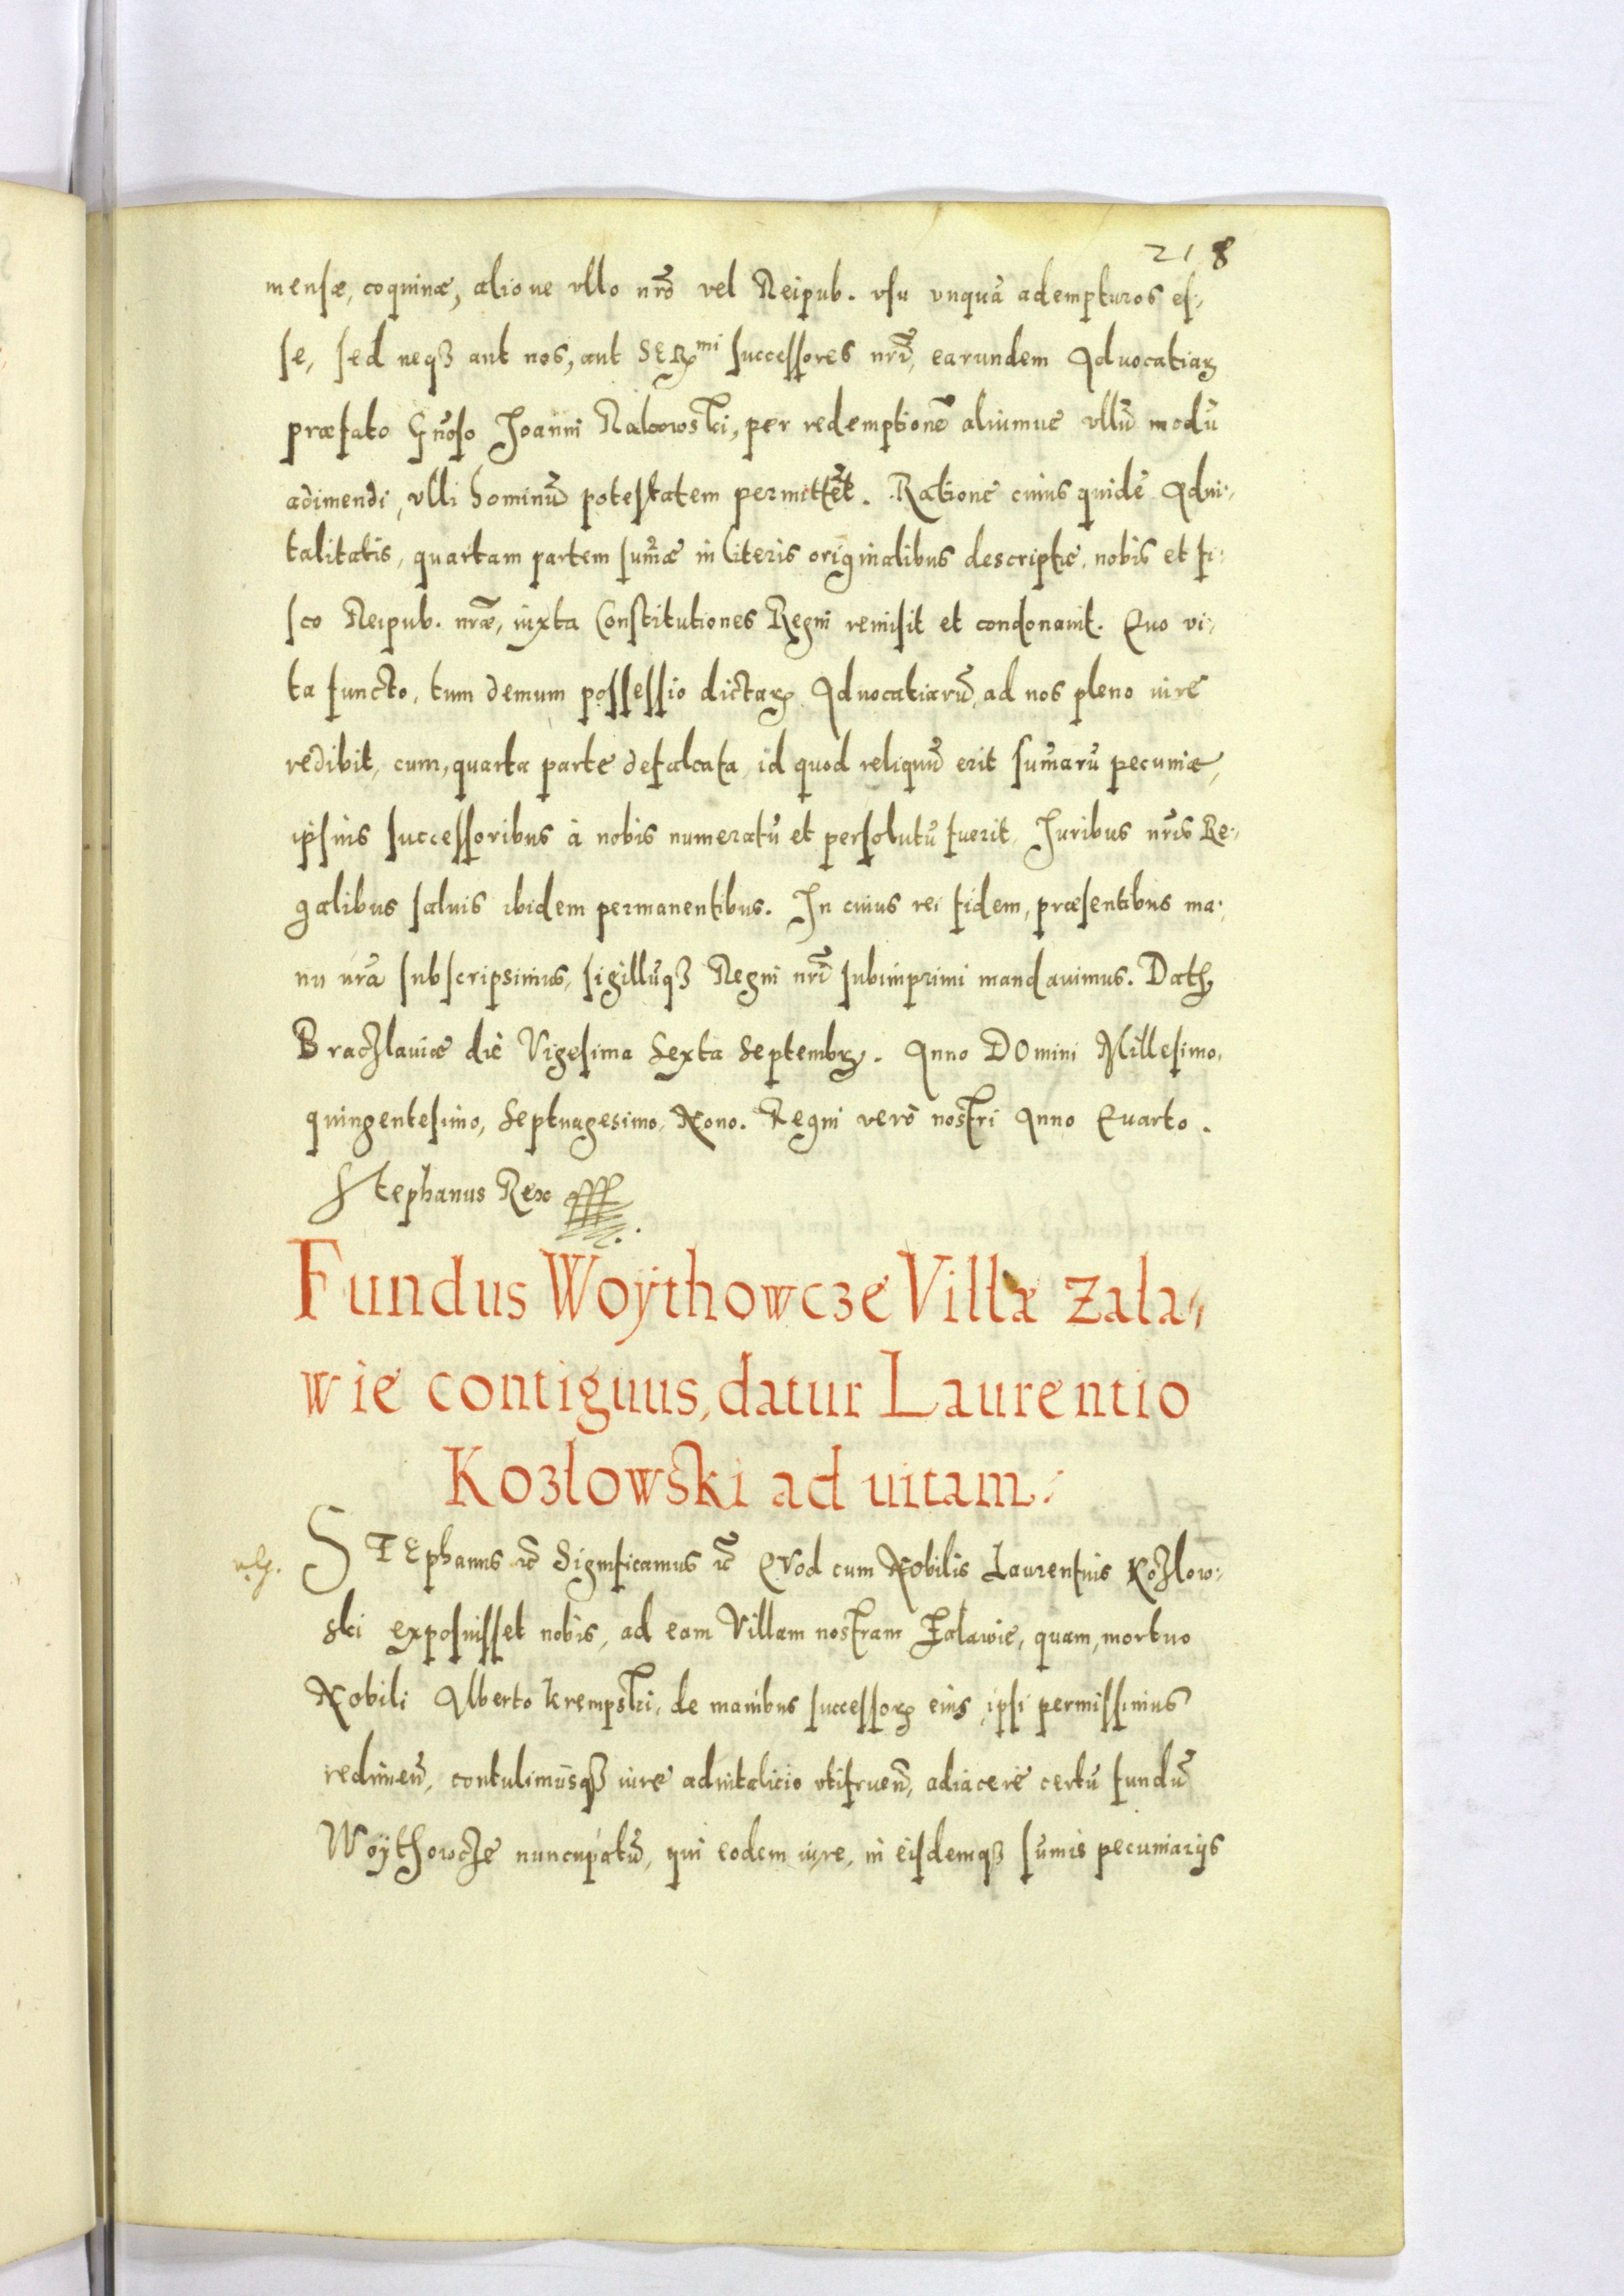 218
mensæ, coquinæ, alioue vllo nr̃o vel Reipub. vsu vnquā adempturos es,
se, sed neqȝ aut nos, aut SERmi successores nr̃i, earundem Aduocatiaꝝ
præfato Gñoso Joanni Rakowski, per redemptionē aliumue vllū modū
adimendi, vlli hominū potestatem permittẽt. Ratione cuius quidē Adui,
talitatis, quartam partem sum̃æ in literis originalibus descriptæ, nobis et fi,
sco Reipub. nr̃æ, iuxta Constitutiones Regni remisit et condonauit. Quo vi,
ta functo, tum demum possessio dictaꝝ Aduocatiarū, ad nos pleno iure
redibit, cum, quarta parte defalcata, id quod reliquū erit sum̃arū pecuniæ,
ipsius successoribus à nobis numeratū et persolutū fuerit, Juribus nr̃is Re,
galibus saluis ibidem permanentibus. In cuius rei fidem, præsentibus ma,
nu nr̃a subscripsimus, sigillūqȝ Regni nr̃i subimprimi mandauimus. Datꝝ
Braczlauiæ die Vigesima Sexta Septembꝝ. Anno DOmini Millesimo,
quingentesimo, Septuagesimo, Nono. Regni verò nostri Anno Quarto.
Stephanus Rex
Fundus Woÿthowcze Villæ Zala,
wie contiguus, datur Laurentio
Kozlowski ad uitam.
STEphanus &c̃ Significamus &c̃ QVod cum Nobilis Laurentius Kozlow,
ski exposuisset nobis, ad eam Villam nostram Zalawie, quam, mortuo
Nobili Alberto Krempski, de manibus successoꝝ eius, ipsi permissimus
redimeñ, contulimusqȝ iure aduitalicio vtifrueñ, adiacere certū fundū
Woÿthowcze nuncupatū, qui eodem iure, in eisdemqȝ sum̃is pecuniarijs